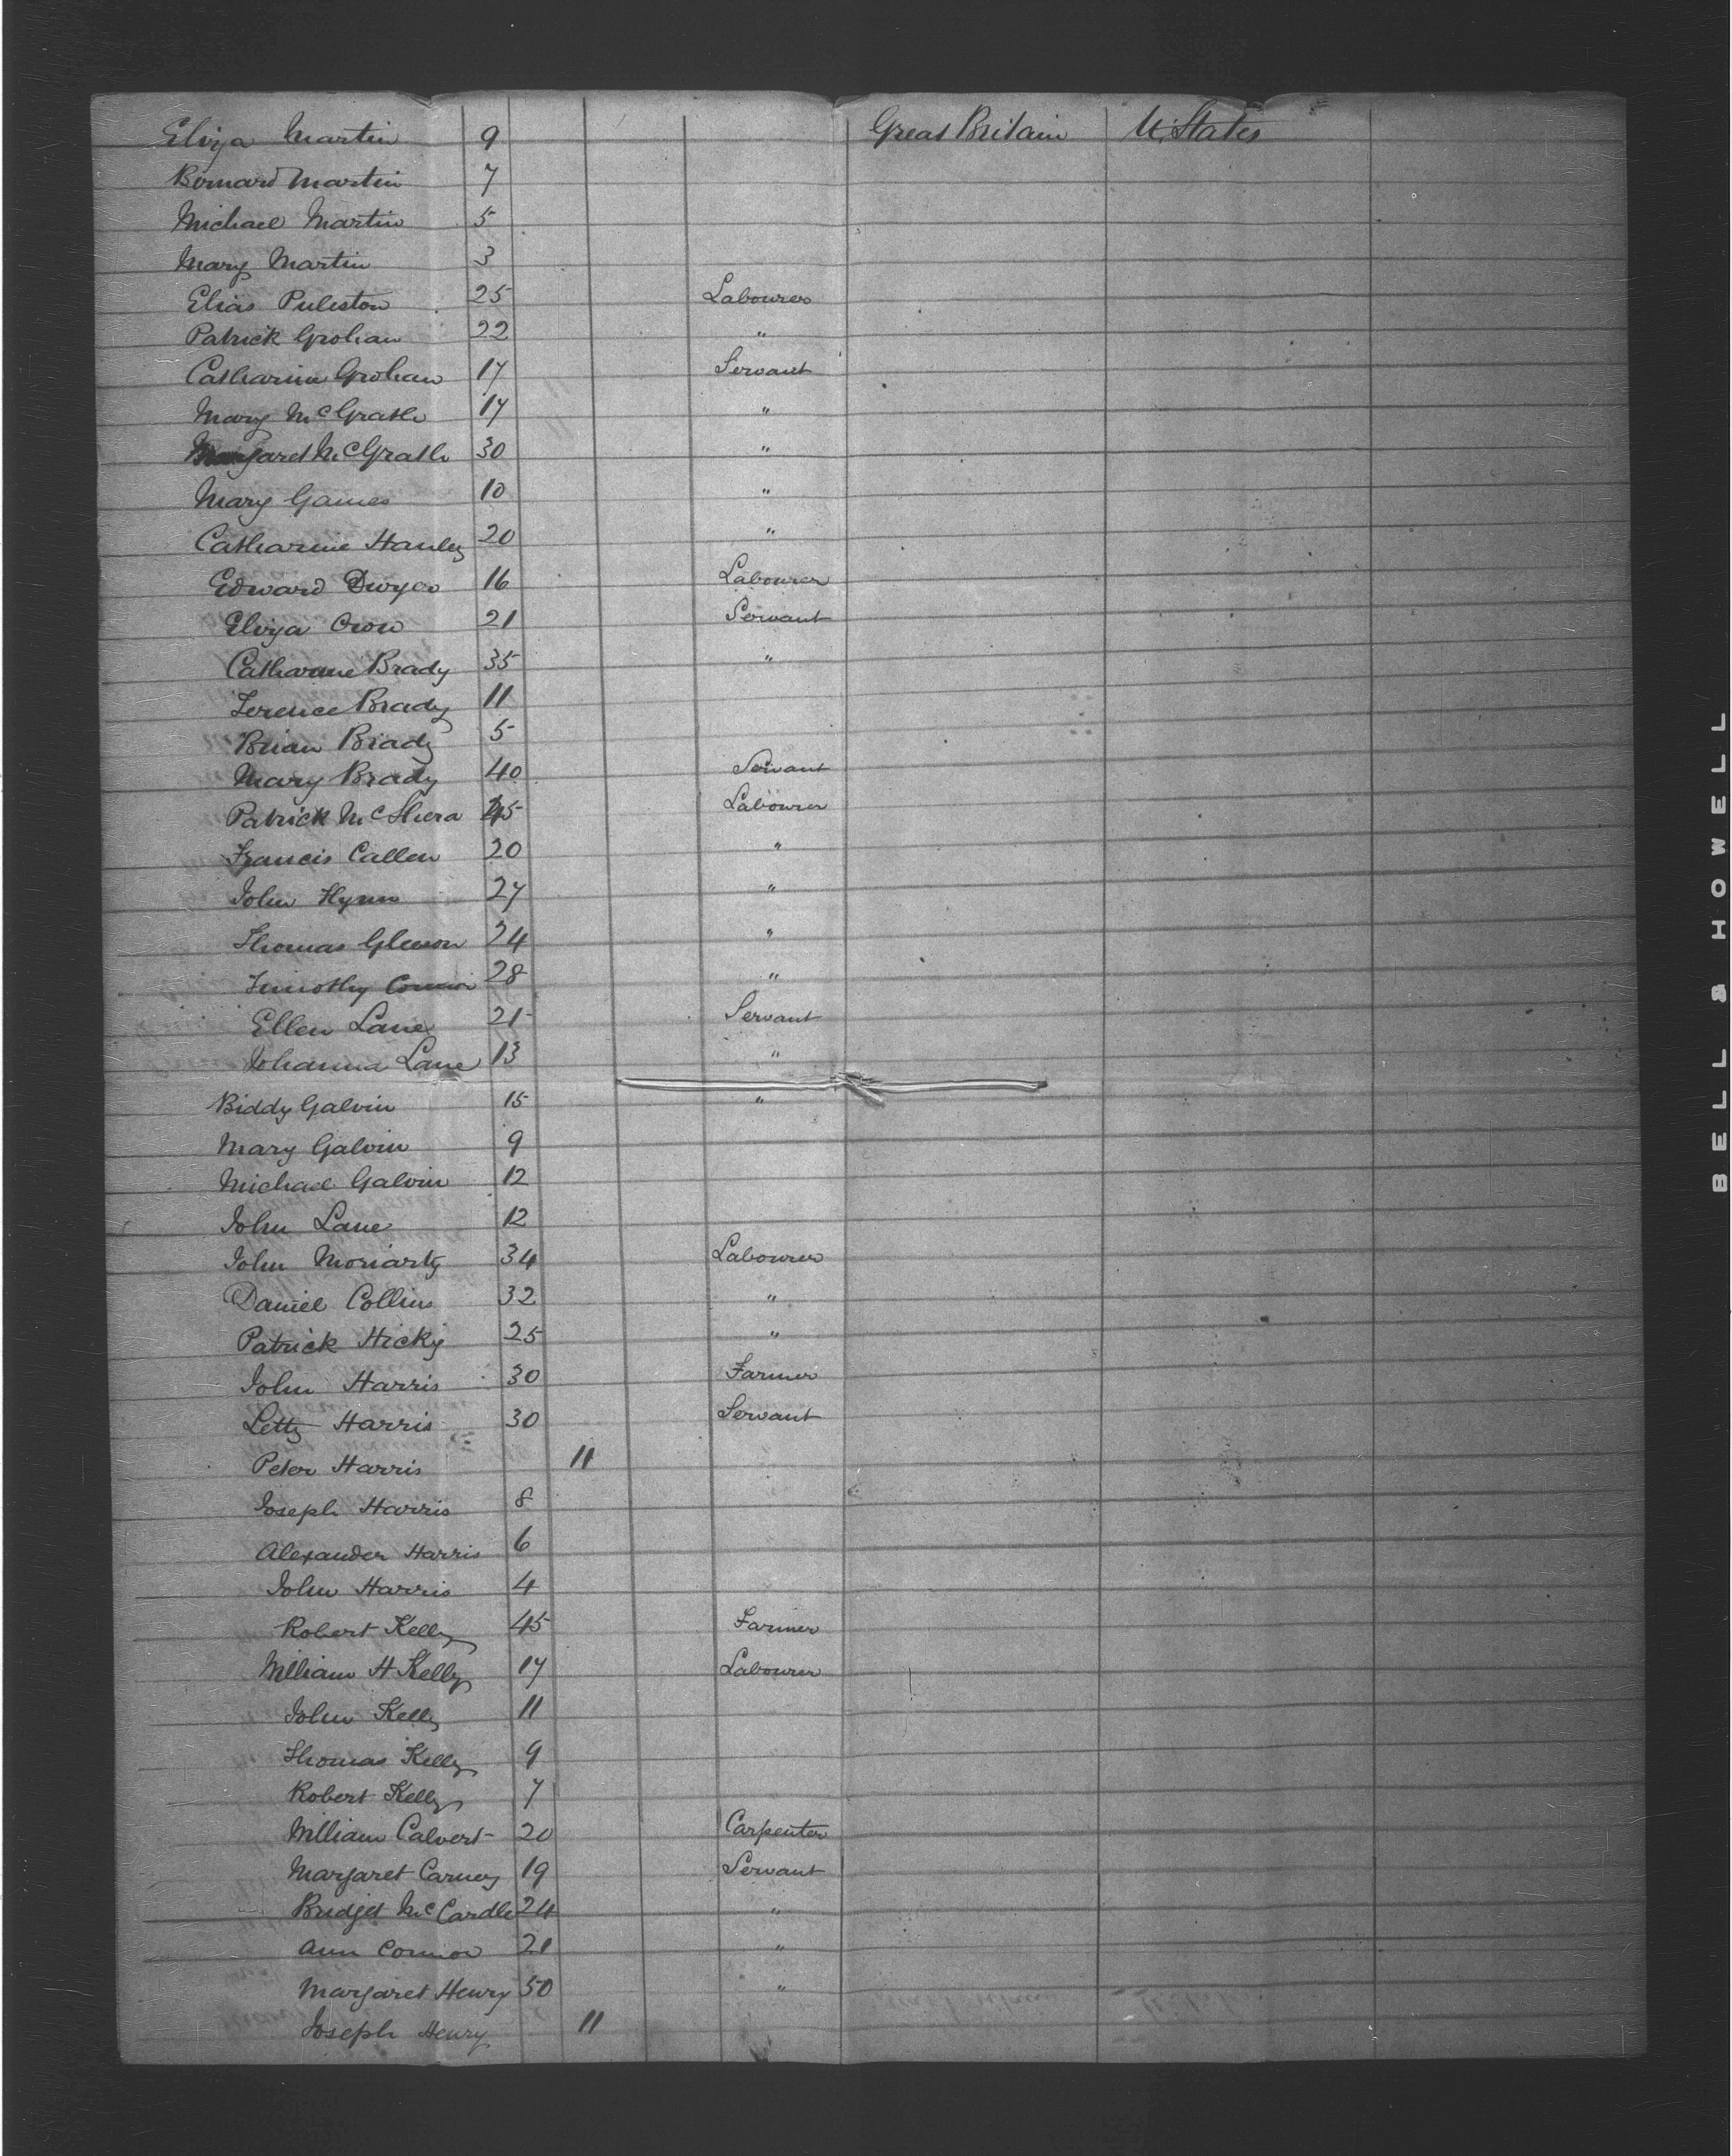 Eliza Martin 9 Great Britain U. States
Bernard Martin 7
Michael Martin 5
Mary Martin 3
Elias Puleston 25 Labourer
Patrick Grohan 22 "
Catharine Grohan 17 Servant
Mary McGrath 17 "
Margaret McGrath 30 "
Mary Gaines 10 "
Catharine Hanley 20 "
Edward Dwyer 16 Labourer
Eliza Crow 21 Servant
Catharine Brady 35 "
Terence Brady 11
Brian Brady 5
Mary Brady 40 Servant
Patrick McShera 45 Labourer
Francis Callen 20 "
John Flynn 27 "
Thomas Gleeson 24 "
Timothy Connor 28 "
Ellen Lane 21 Servant
Johanna Lane 13 "
Biddy Galvin 15 "
Mary Galvin 9
Michael Galvin 12
John Lane 12
John Moriarty 34 Labourer
Daniel Collins 32 "
Patrick Hicky 25 "
John Harris 30 Farmer
Letty Harris 30 Servant
Peter Harris 11
Joseph Harris 8
Alexander Harris 6
John Harris 4
Robert Kelly 45 Farmer
William H Kelly 17 Labourer
John Kelly 11
Thomas Kelly 9
Robert Kelly 7
William Calvert 20 Carpenter
Margaret Carney 19 Servant
Bridget McCardle 24 "
Ann Connor 21 "
Margaret Henry 50 "
Joseph Henry 11
BELL & HOWELL